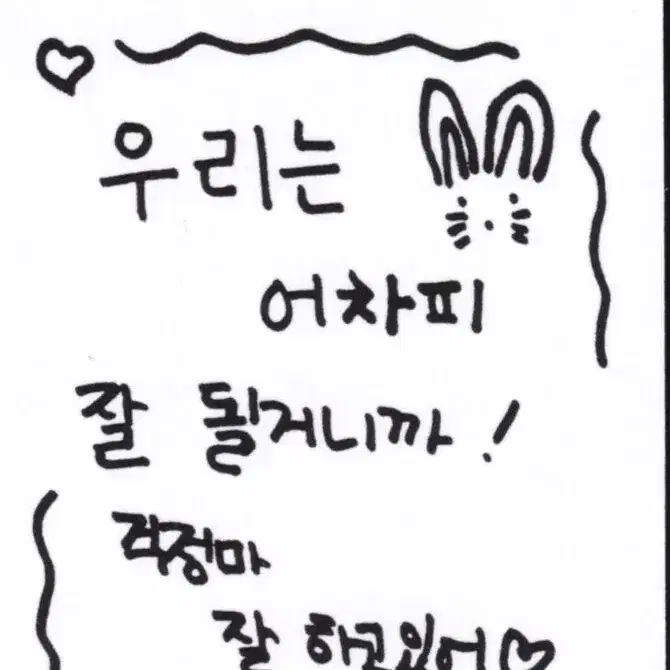 우리는
어차피
잘 될거니까!
걱정마
잘 하고있어♡